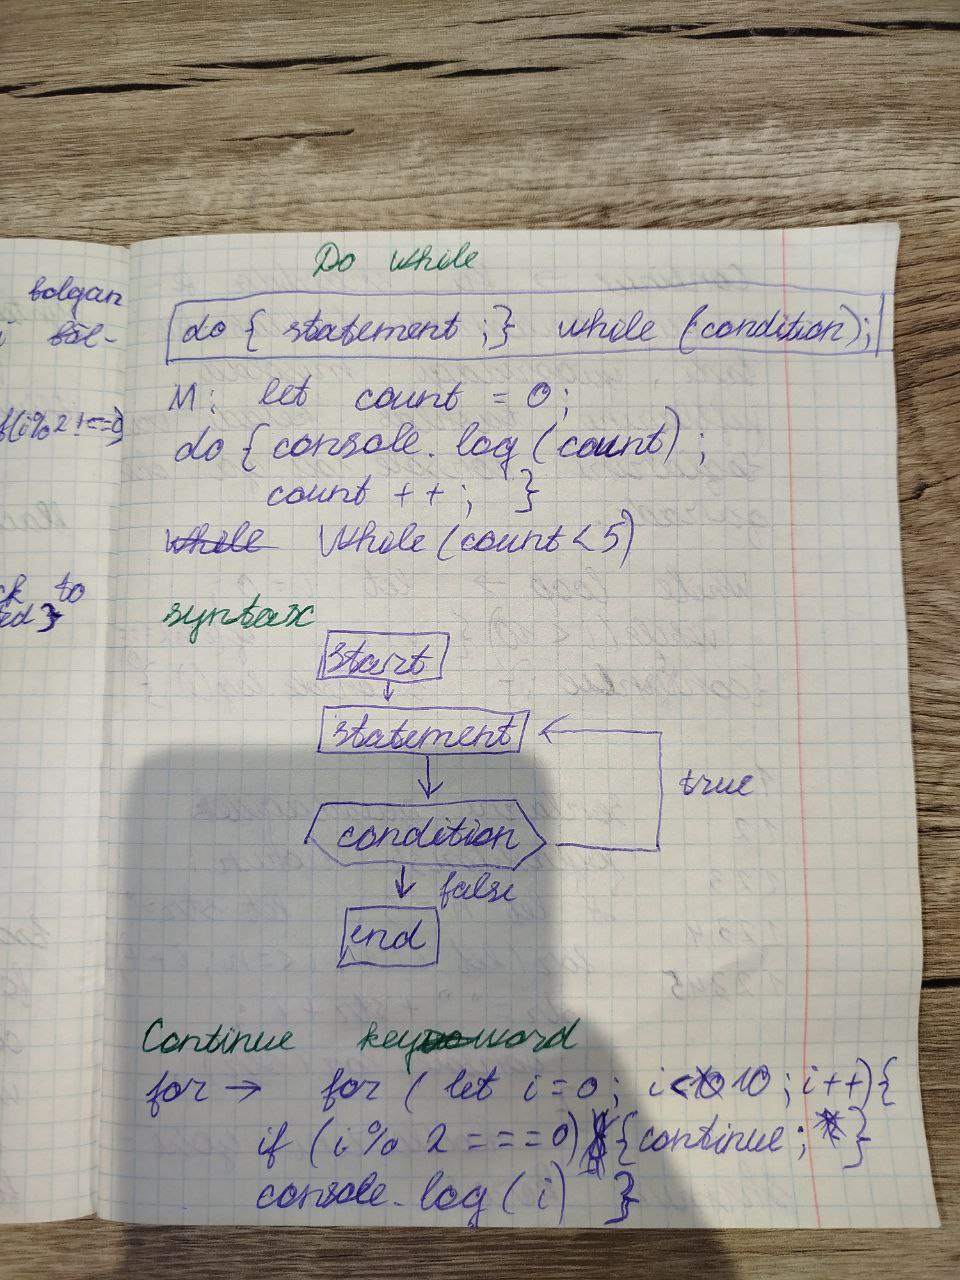 bolgan
bōl-
if(i%2!==0)
ck to
ed}
Do while
do { statement ;} while (condition);
M: let count = 0;
do { console.log (count);
count ++; }
while While (count<5)
syntax
start
statement
true
condition
false
end
Continue keyword
for → for ( let i=0; i<10 ; i++){
if (i % 2 === 0) {continue; }
console.log (i) }